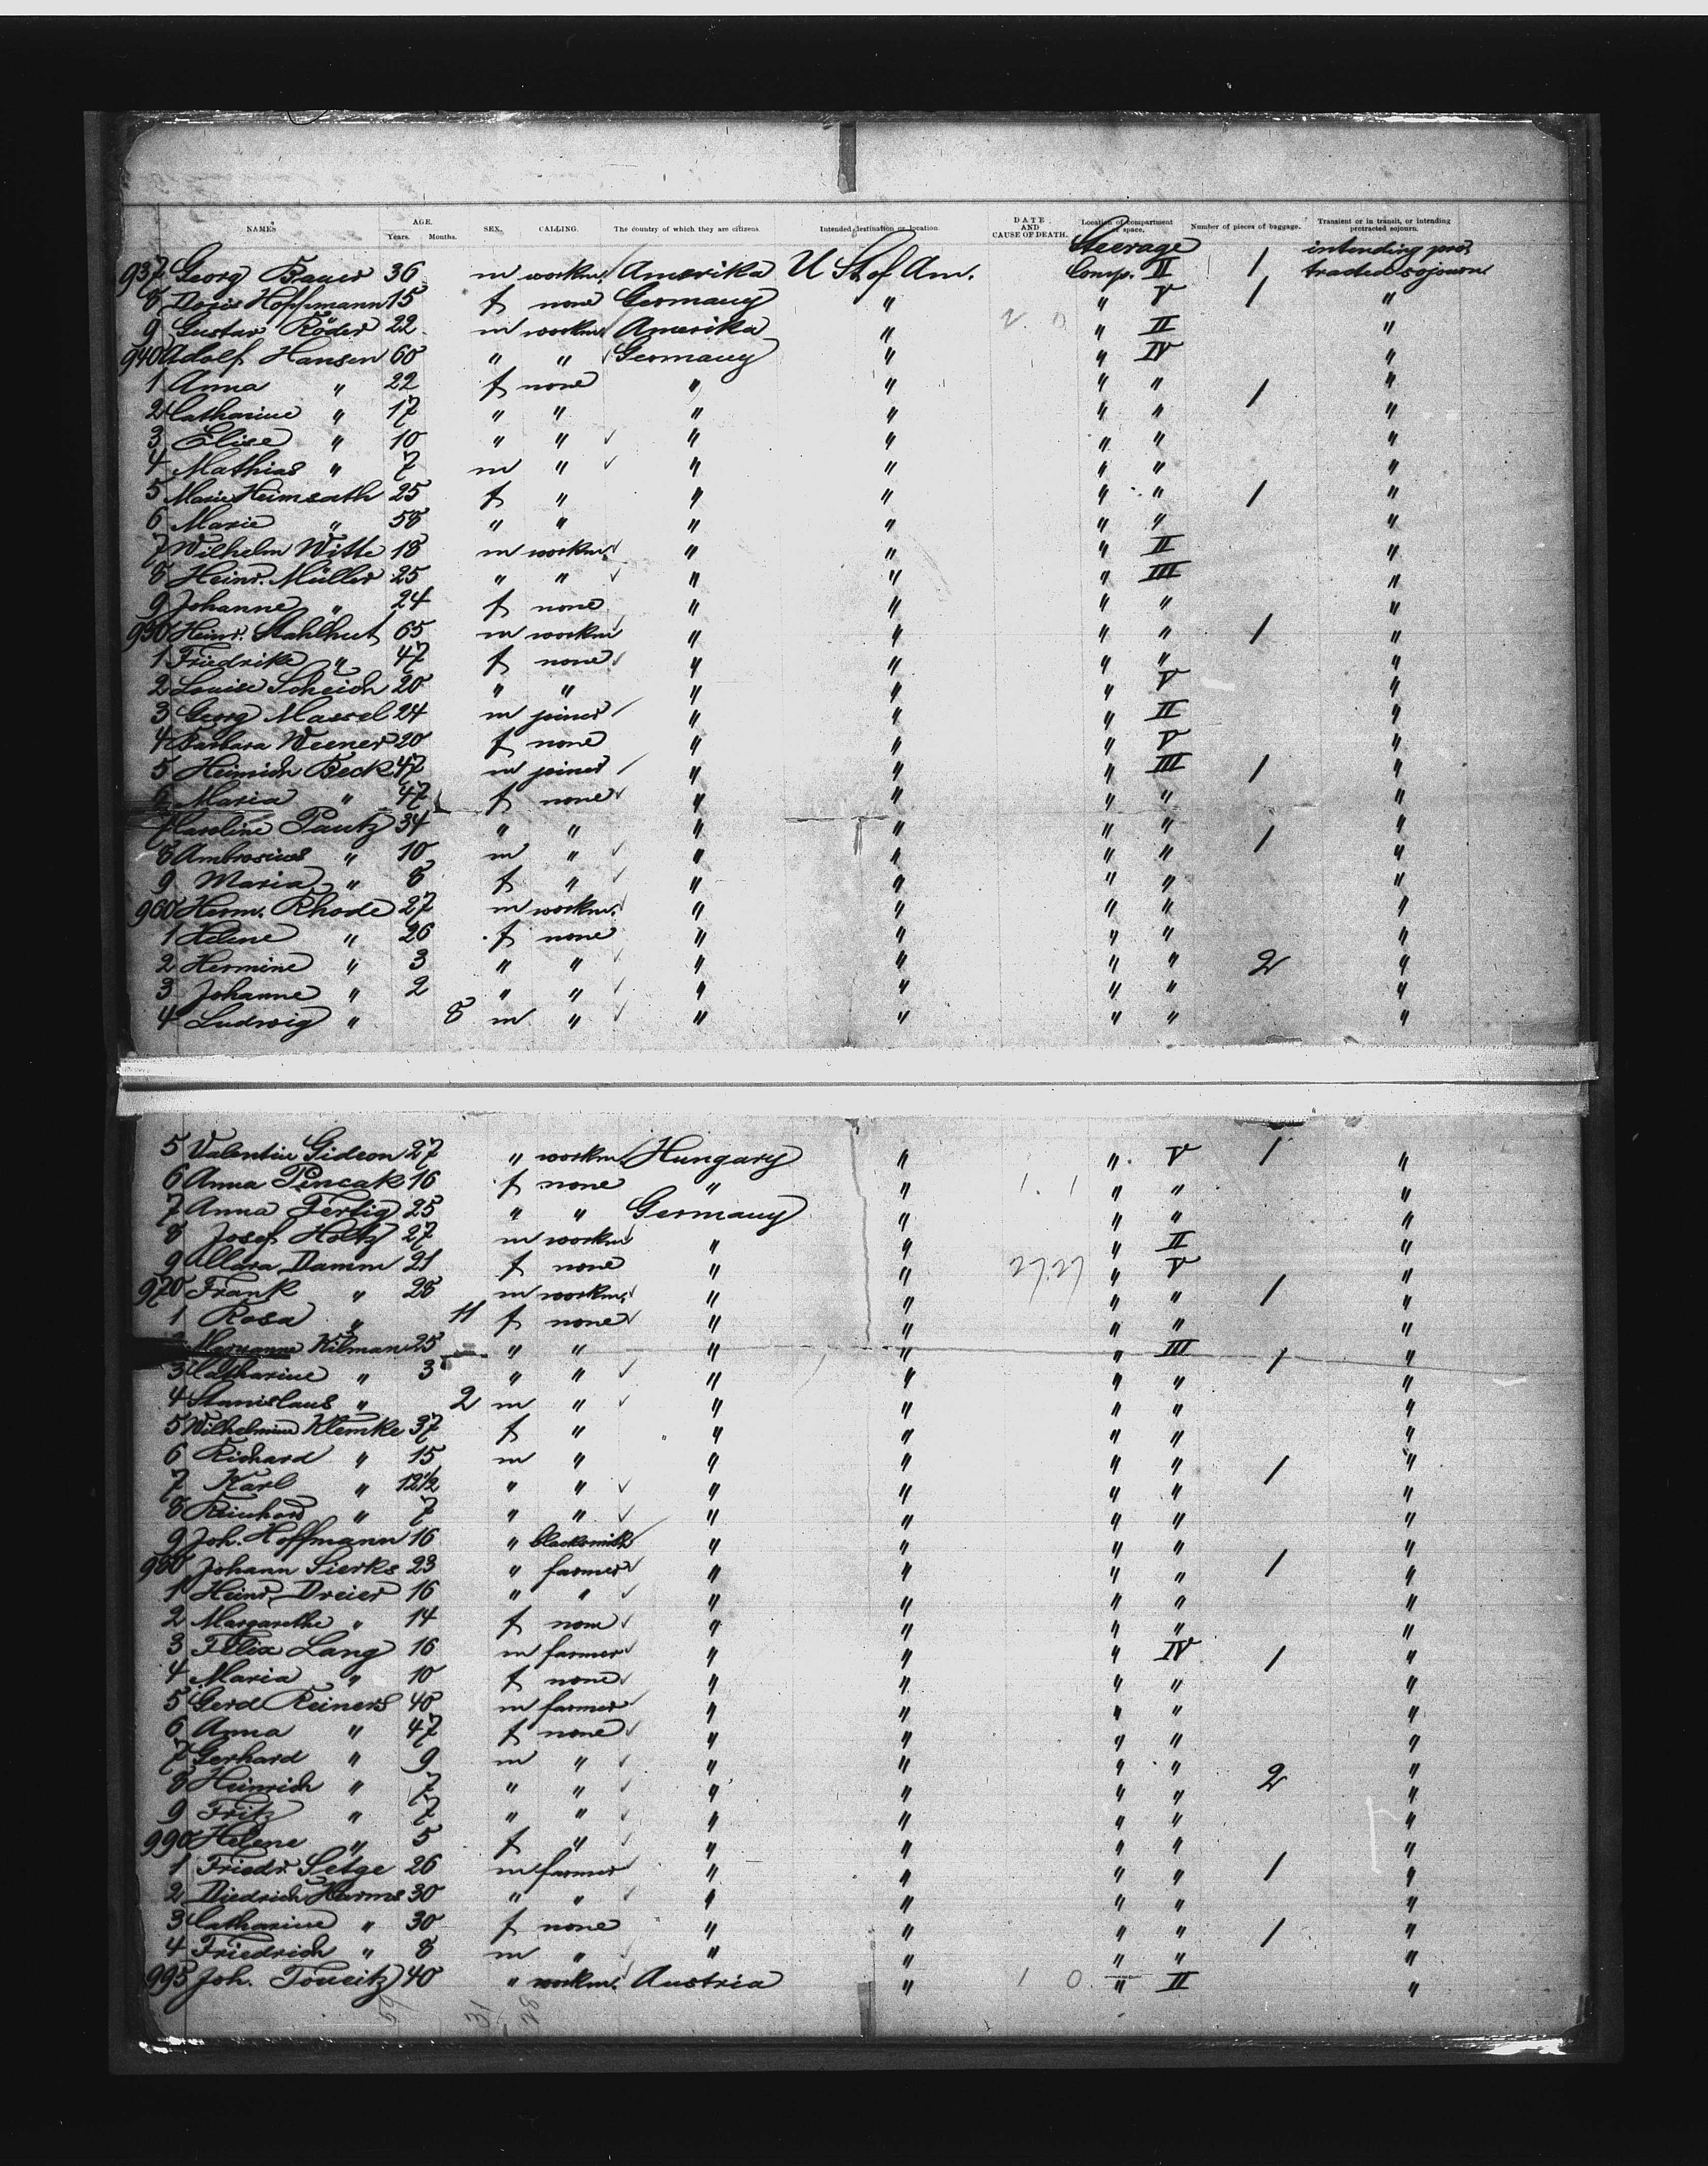 NAMES AGE. Years. Months. SEX. CALLING. The country of which they are citizens. Intended destination or location. DATE AND CAUSE OF DEATH. Location of compartment or space. Number of pieces of baggage. Transient or in transit, or intending protracted sojourn.
Steerage intending pro,
937 Georg Bauer 36 m workm. Amerika U St. of Am. Comp. II 1 tracted sojourn
8 Doris Hoffmann 15 f none Germany " " V 1 "
9 Gustav Röder 22 m workm. Amerika " " II "
940 Adolf Hansen 60 " " Germany " " IV "
1 Anna " 22 f none " " " " 1 "
2 Catharine " 17 " " " " " " "
3 Elise " 10 " " " " " " "
4 Mathias " 7 m " " " " " "
5 Marie Heimsath 25 f " " " " " 1 "
6 Marie " 58 " " " " " " "
7 Wilhelm Witte 18 m workm. " " " II "
8 Heinr. Müller 25 " " " " " III "
9 Johanne " 24 f none " " " " "
950 Heinr. Stahlhut 65 m workm " " " " 1 "
1 Friedrike " 47 f none " " " " "
2 Louise Scheich 20 " " " " " V "
3 Georg Massel 24 m joiner " " " II "
4 Barbara Wiener 20 f none " " " V "
5 Heinrich Beck 47 m joiner " " " III 1 "
6 Maria " 47 f none " " " " "
7 Caroline Pautz 34 " " " " " " 1 "
8 Ambrosius " 10 m " " " " " "
9 Maria " 8 f " " " " " "
960 Herm. Rhode 27 m workm. " " " " "
1 Helene " 26 f none " " " " "
2 Hermine " 3 " " " " " " 2 "
3 Johanne " 2 " " " " " " "
4 Ludwig " 8 m " " " " " "
5 Valentin Gideon 27 " workm. Hungary " " V 1 "
6 Anna Pencak 16 f none " " 1. 1 " " "
7 Anna Fertig 25 " " Germany " " " "
8 Josef Holtz 27 m workm " " " II "
9 Clara Damm 21 f none " " 27.27 " V "
970 Frank " 28 m workm. " " " " 1 "
1 Rosa " 11 f none " " " " "
Marianne Kilman 25 " " " " " III 1 "
3 Catharine " 3 " " " " " " "
4 Stanislaus " 2 m " " " " " "
5 Wilhelmine Klemke 37 f " " " " " "
6 Richard " 15 m " " " " " 1 "
7 Karl " 12 1/2 " " " " " " "
8 Reinhard " 7 " " " " " " "
9 Joh. Hoffmann 16 " blacksmith " " " " "
980 Johann Sierks 23 " farmer " " " " 1 "
1 Heinr. Dreier 16 " " " " " " "
2 Margarethe " 14 f none " " " " "
3 Felix Lang 16 m farmer " " " IV 1 "
4 Maria " 10 f none " " " " "
5 Gerd Reiners 40 m farmer " " " " "
6 Anna " 47 f none " " " " "
7 Gerhard " 9 m " " " " " "
8 Heinrich " 7 " " " " " " 2 "
9 Fritz " 7 " " " " " " "
990 Helene " 5 f " " " " " "
1 Friedr. Setge 26 m farmer " " " " 1 "
2 Diedrich Harms 30 " " " " " " "
3 Catharine " 30 f none " " " " 1 "
4 Friedrich " 8 m " " " " " "
995 Joh. 40 " workm. Austria " 1 0 " II "
59 31 28